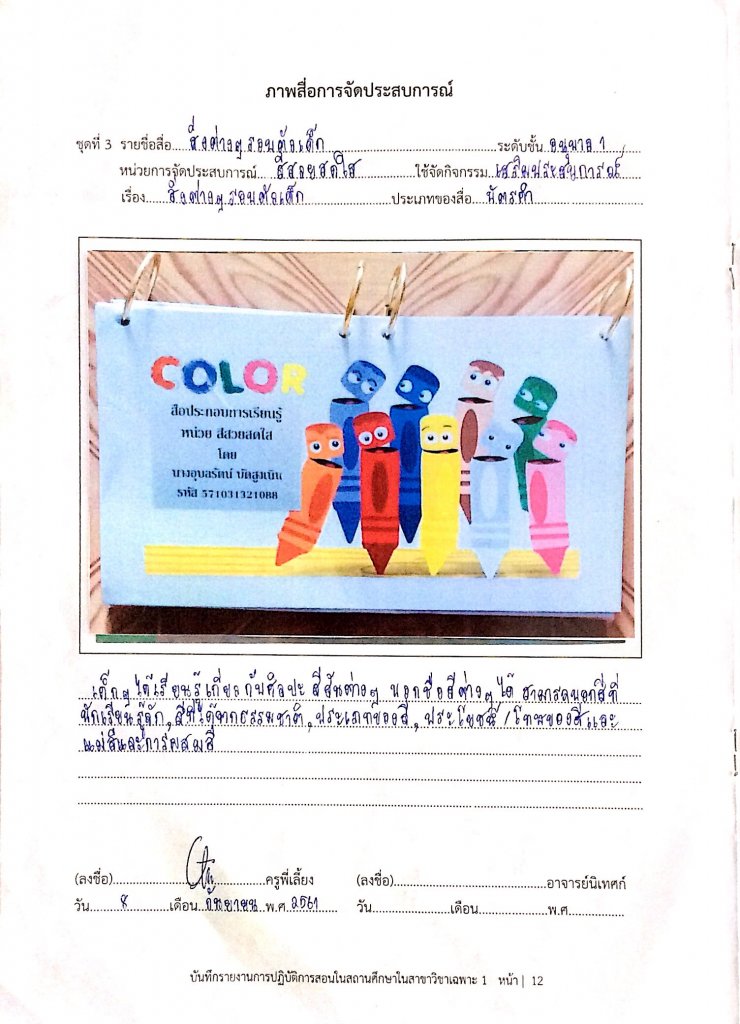 ภาพสื่อการจัดประสบการณ์
ชุดที่ 3 รายชื่อสื่อ สิ่งต่างๆรอบตัวเด็ก ระดับชั้น อนุบาล 1
หน่วยการจัดประสบการณ์ สีสวยสดใส ใช้จัดกิจกรรม เสริมประสบการณ์
เรื่อง สิ่งต่างๆรอบตัวเด็ก ประเภทของสื่อ บัตรคำ
COLOR
สื่อประกอบการเรียนรู้
หน่วย สีสวยสดใส
โดย
นางอุบลรัตน์ บัดสูงเนิน
รหัส 571031321088
เด็กๆ ได้เรียนรู้เกี่ยวกับศิลปะ สีสันต่างๆ บอกชื่อสีต่างๆ ได้ สามารถบอกสีที่
นักเรียนรู้จัก, สีที่ได้จากธรรมชาติ, ประเภทของสี, ประโยชน์/โทษของสีและ
แม่สีและการผสมสี
(ลงชื่อ) ครูพี่เลี้ยง (ลงชื่อ) อาจารย์นิเทศก์
วัน 8 เดือน กันยายน พ.ศ 2561 วัน เดือน พ.ศ.
บันทึกรายงานการปฏิบัติการสอนในสถานศึกษาในสาขาวิชาเฉพาะ 1 หน้า | 12